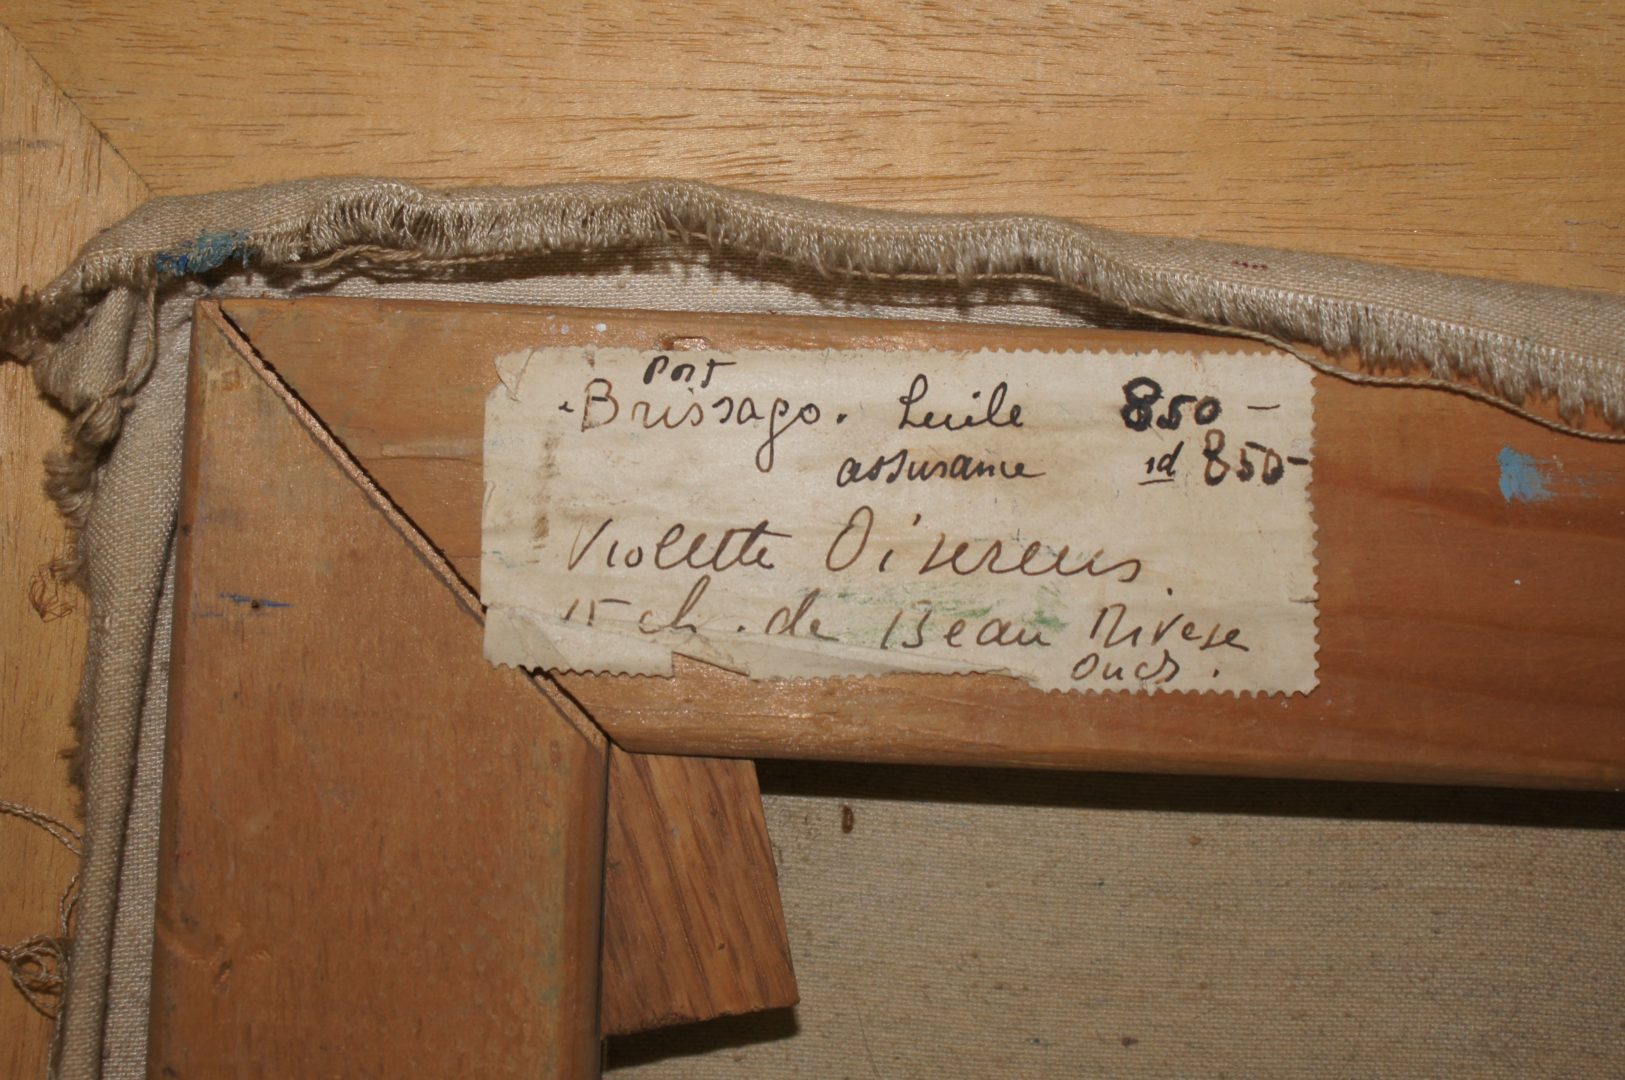 Port
Brissago. huile 850 -
assurance id 850-
Violette Diserens
15 ch. de Beau Rivage
Ouchy.